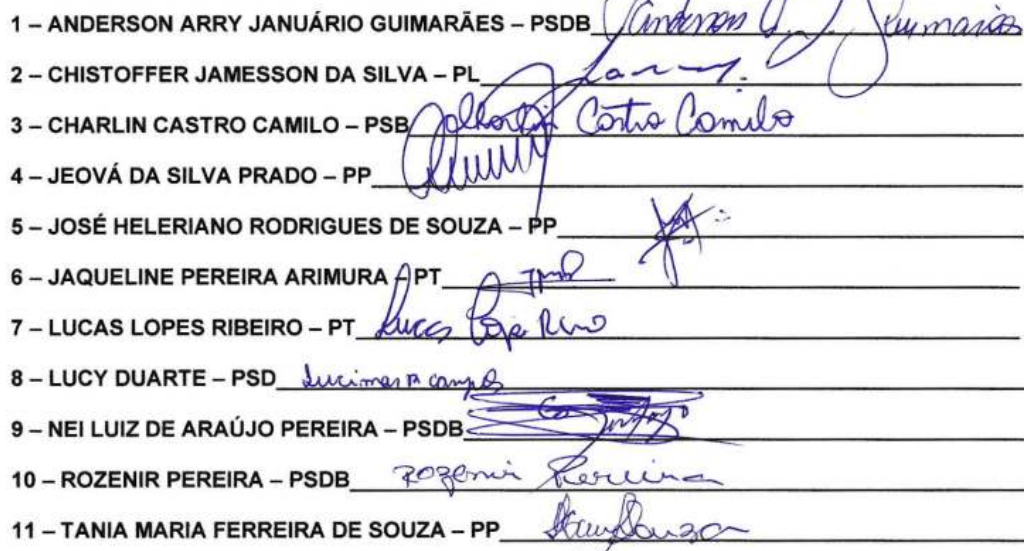 1 – ANDERSON ARRY JANUÁRIO GUIMARÃES – PSDB Anderson A. J. Guimarães
2 – CHISTOFFER JAMESSON DA SILVA – PL
3 – CHARLIN CASTRO CAMILO – PSB Charlin Castro Camilo
4 – JEOVÁ DA SILVA PRADO – PP
5 – JOSÉ HELERIANO RODRIGUES DE SOUZA – PP
6 – JAQUELINE PEREIRA ARIMURA – PT
7 – LUCAS LOPES RIBEIRO – PT Lucas
8 – LUCY DUARTE – PSD Lucimar
9 – NEI LUIZ DE ARAÚJO PEREIRA – PSDB
10 – ROZENIR PEREIRA – PSDB Rozenir Pereira
11 – TANIA MARIA FERREIRA DE SOUZA – PP Souza